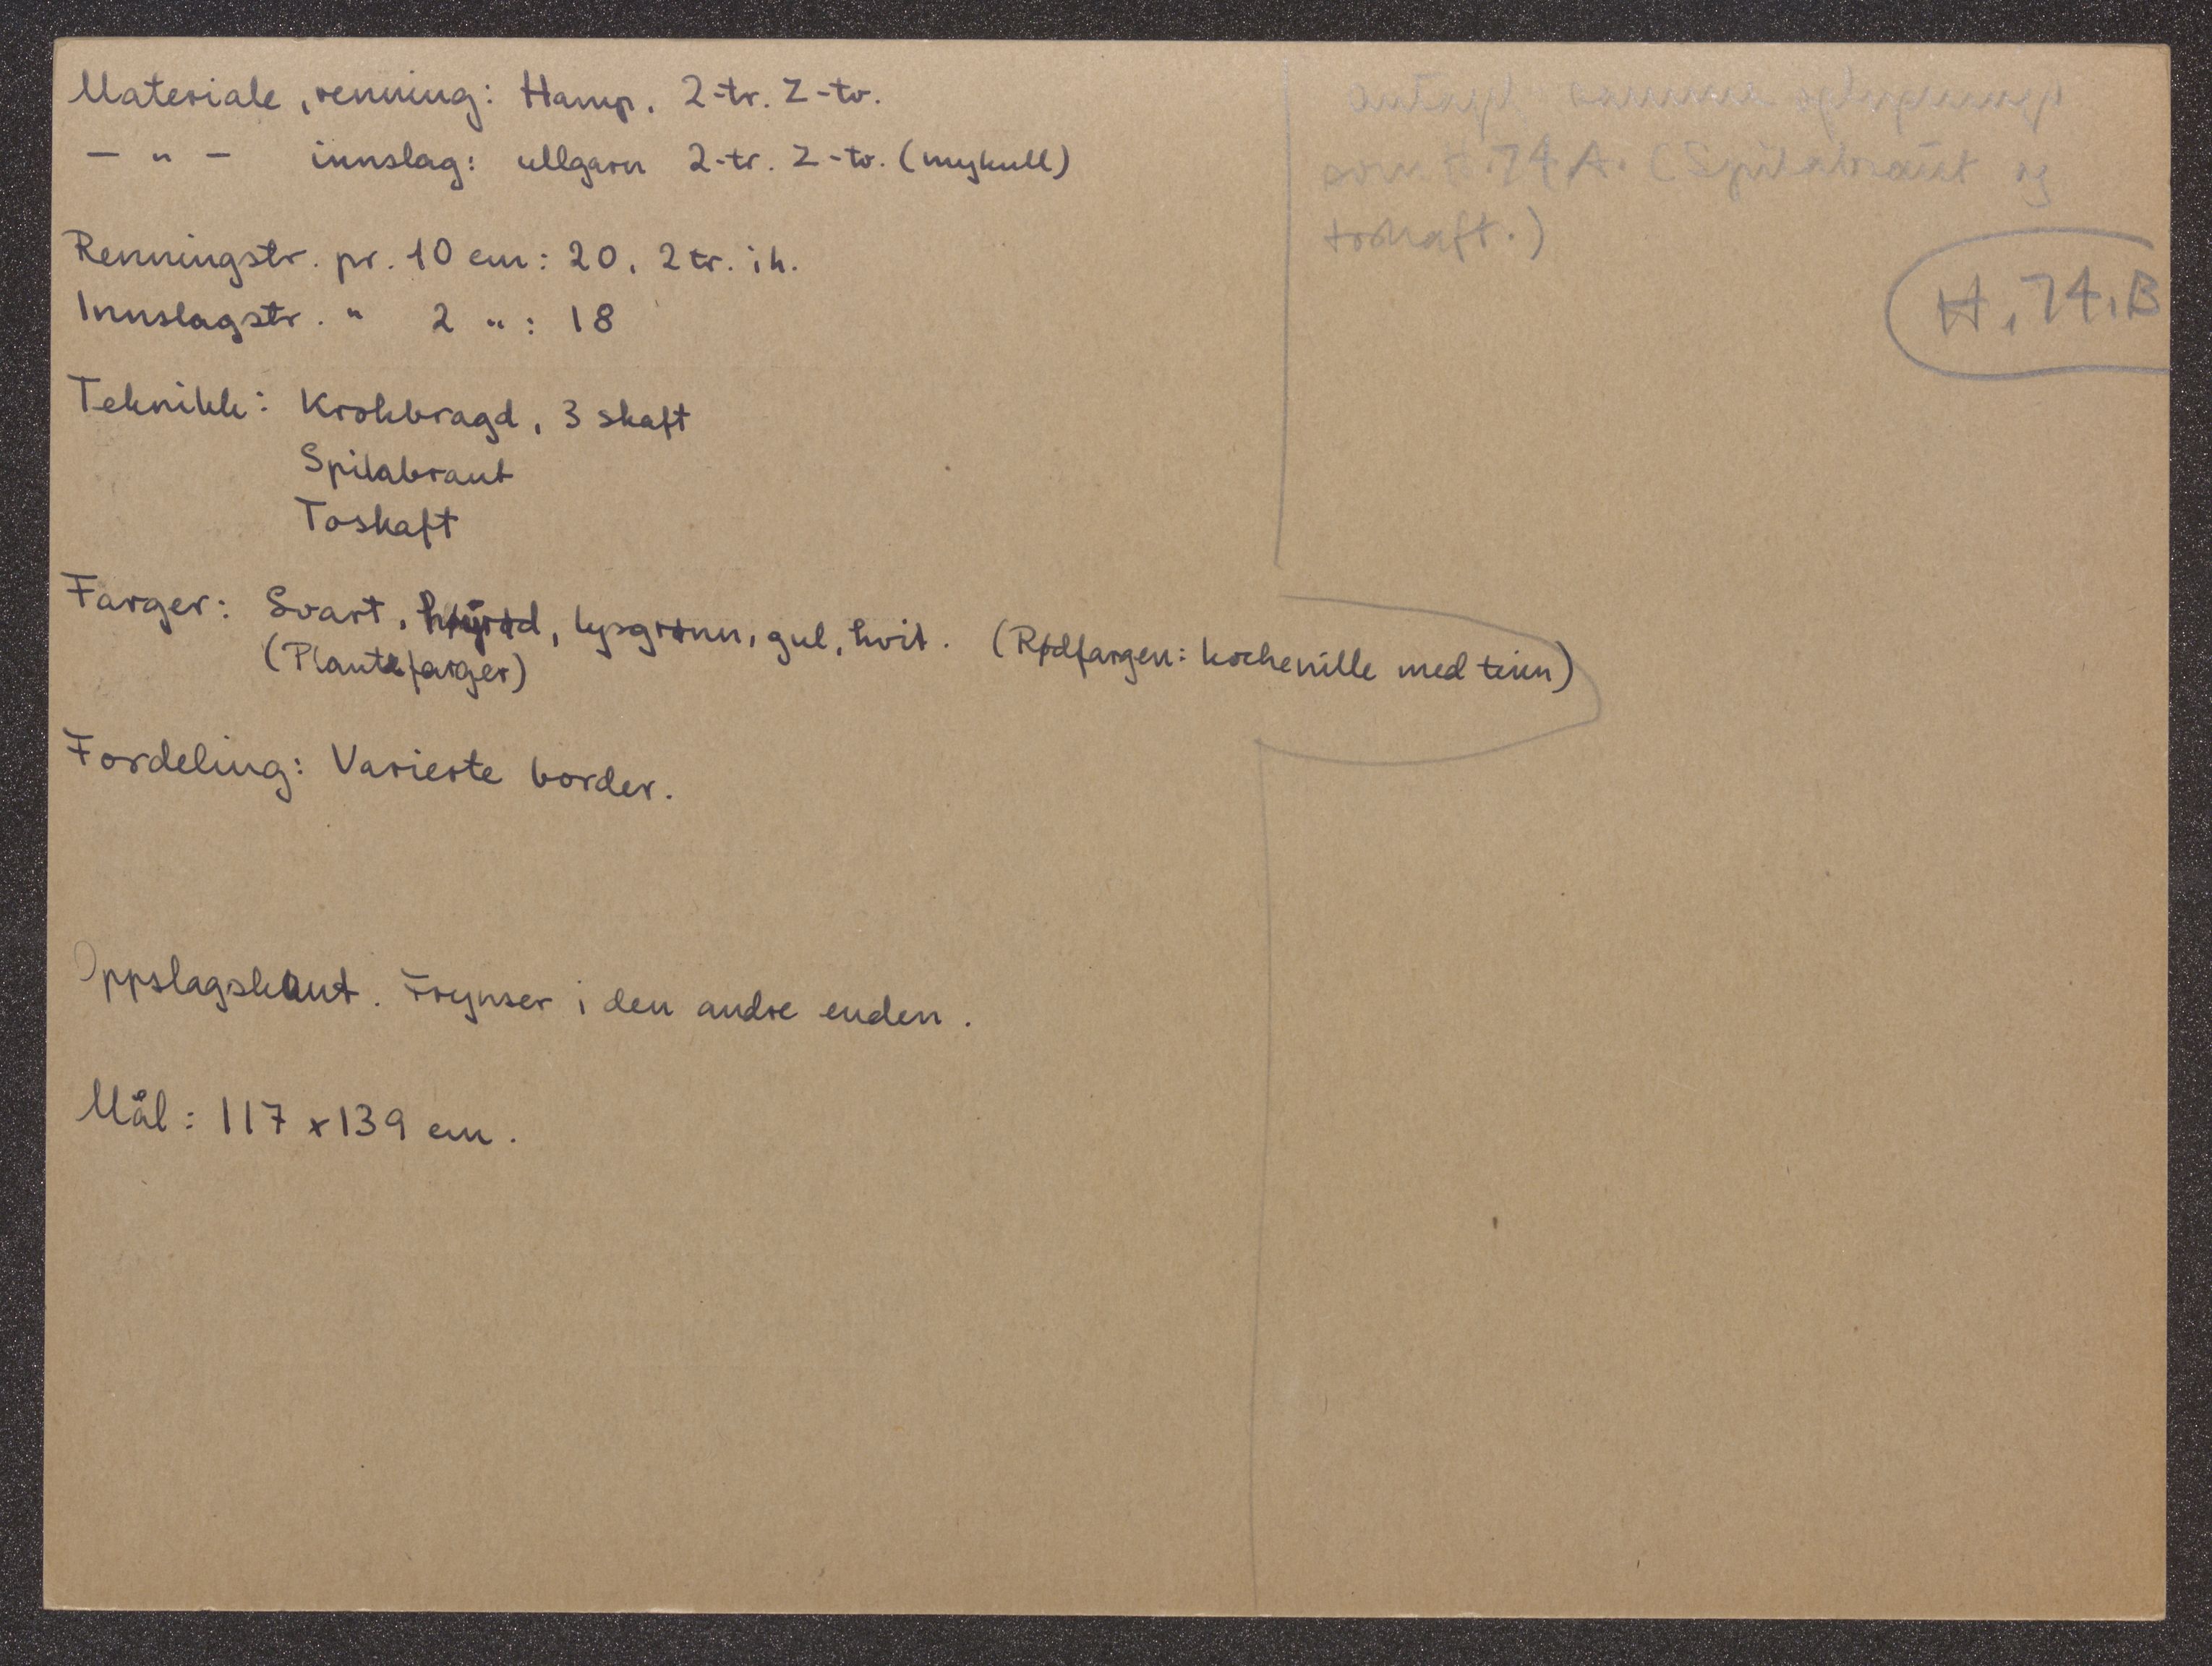 Materiale, renning: Hamp. 2-tr. Z-tv.
— " — innslag: ullgarn 2-tr. Z-tv. (mykull)
Renningstr. pr. 10 cm: 20. 2 tr. i h.
Innslagstr. " 2 " : 18
Teknikk: Krokbragd, 3 skaft
Spilabraut
Toskaft
Farger: Svart, høyrød, lysgrønn, gul, hvit. (Rødfargen: kochenille med tinn)
(Plantefarger)
Fordeling: Varierte border.
Oppslagskant. Frynser i den andre enden.
Mål: 117 x 139 cm.
samme
som 74 A. (Spilabraut og
toskaft.)
H. 74. B